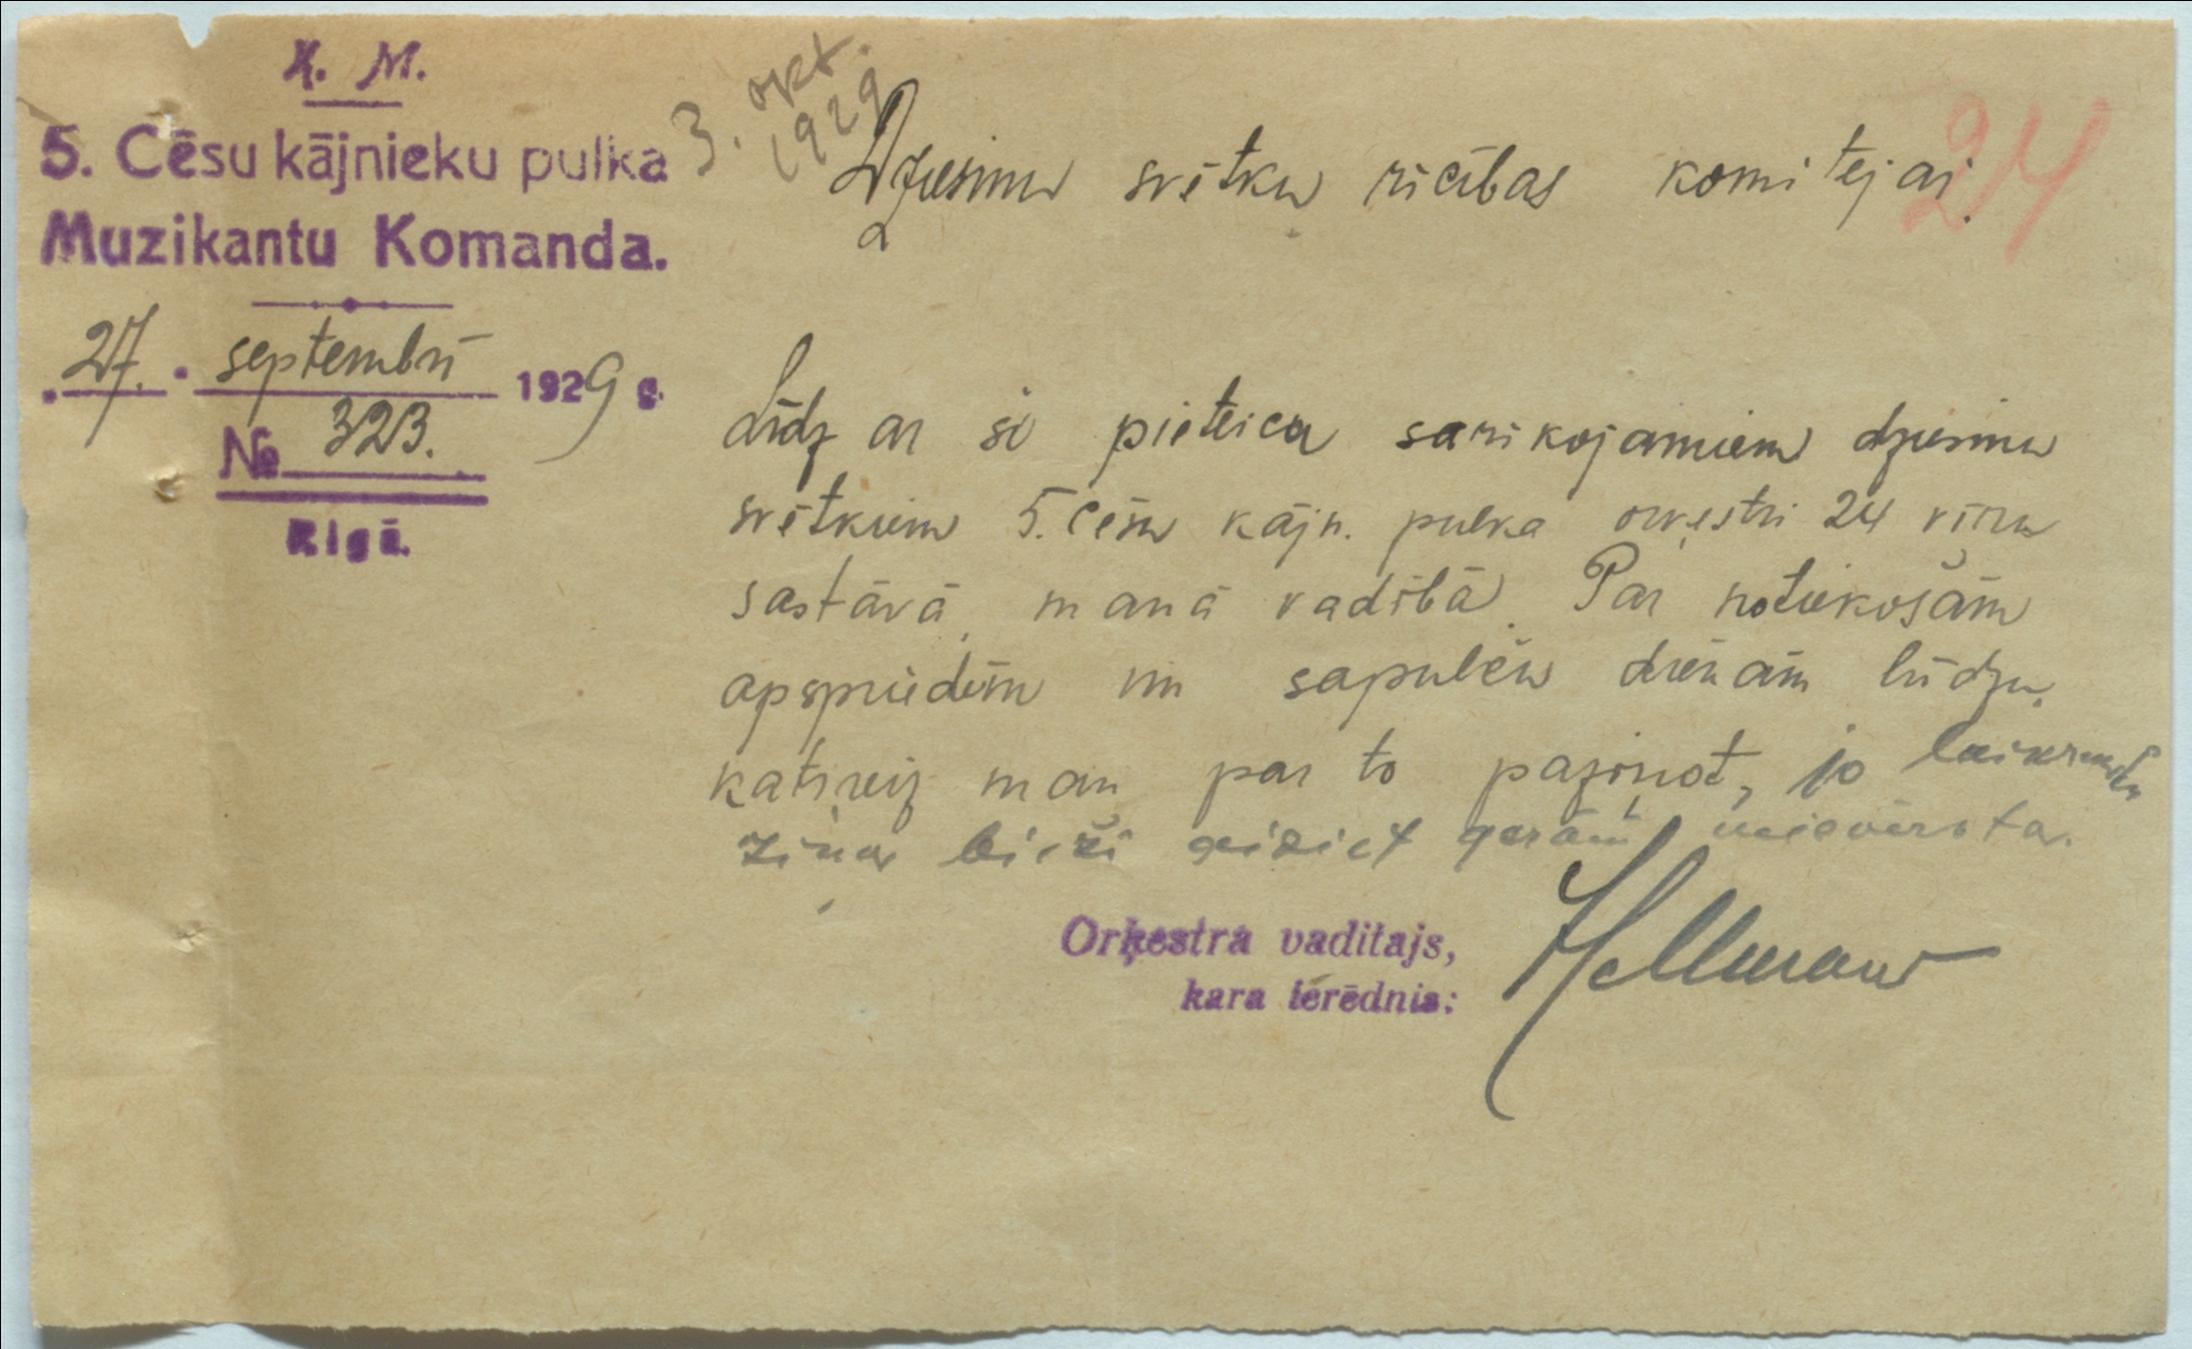 K. M.
5. Cēsu kājnieku pulka
Muzikantu Komanda.
27. septembrī 1929 g.
№ 323.
Rīgā.
3. okt.
1929
24
Dziesmu svētku rīcības komitejai.
Līdz ar šo pieteicu sarīkojamiem dziesmu
svētkiem 5. Cēsu kājn. pulka orķestri 24 vīru
sastāvā, manā vadībā. Par notiekošām
apspriedēm un sapulču dienām lūdzu,
katrreiz man par to paziņot, jo laikrakstu
ziņas bieži aiziet garām neievērota.
Orķestra vadītajs,
kara ierēdnis:
Hellmann